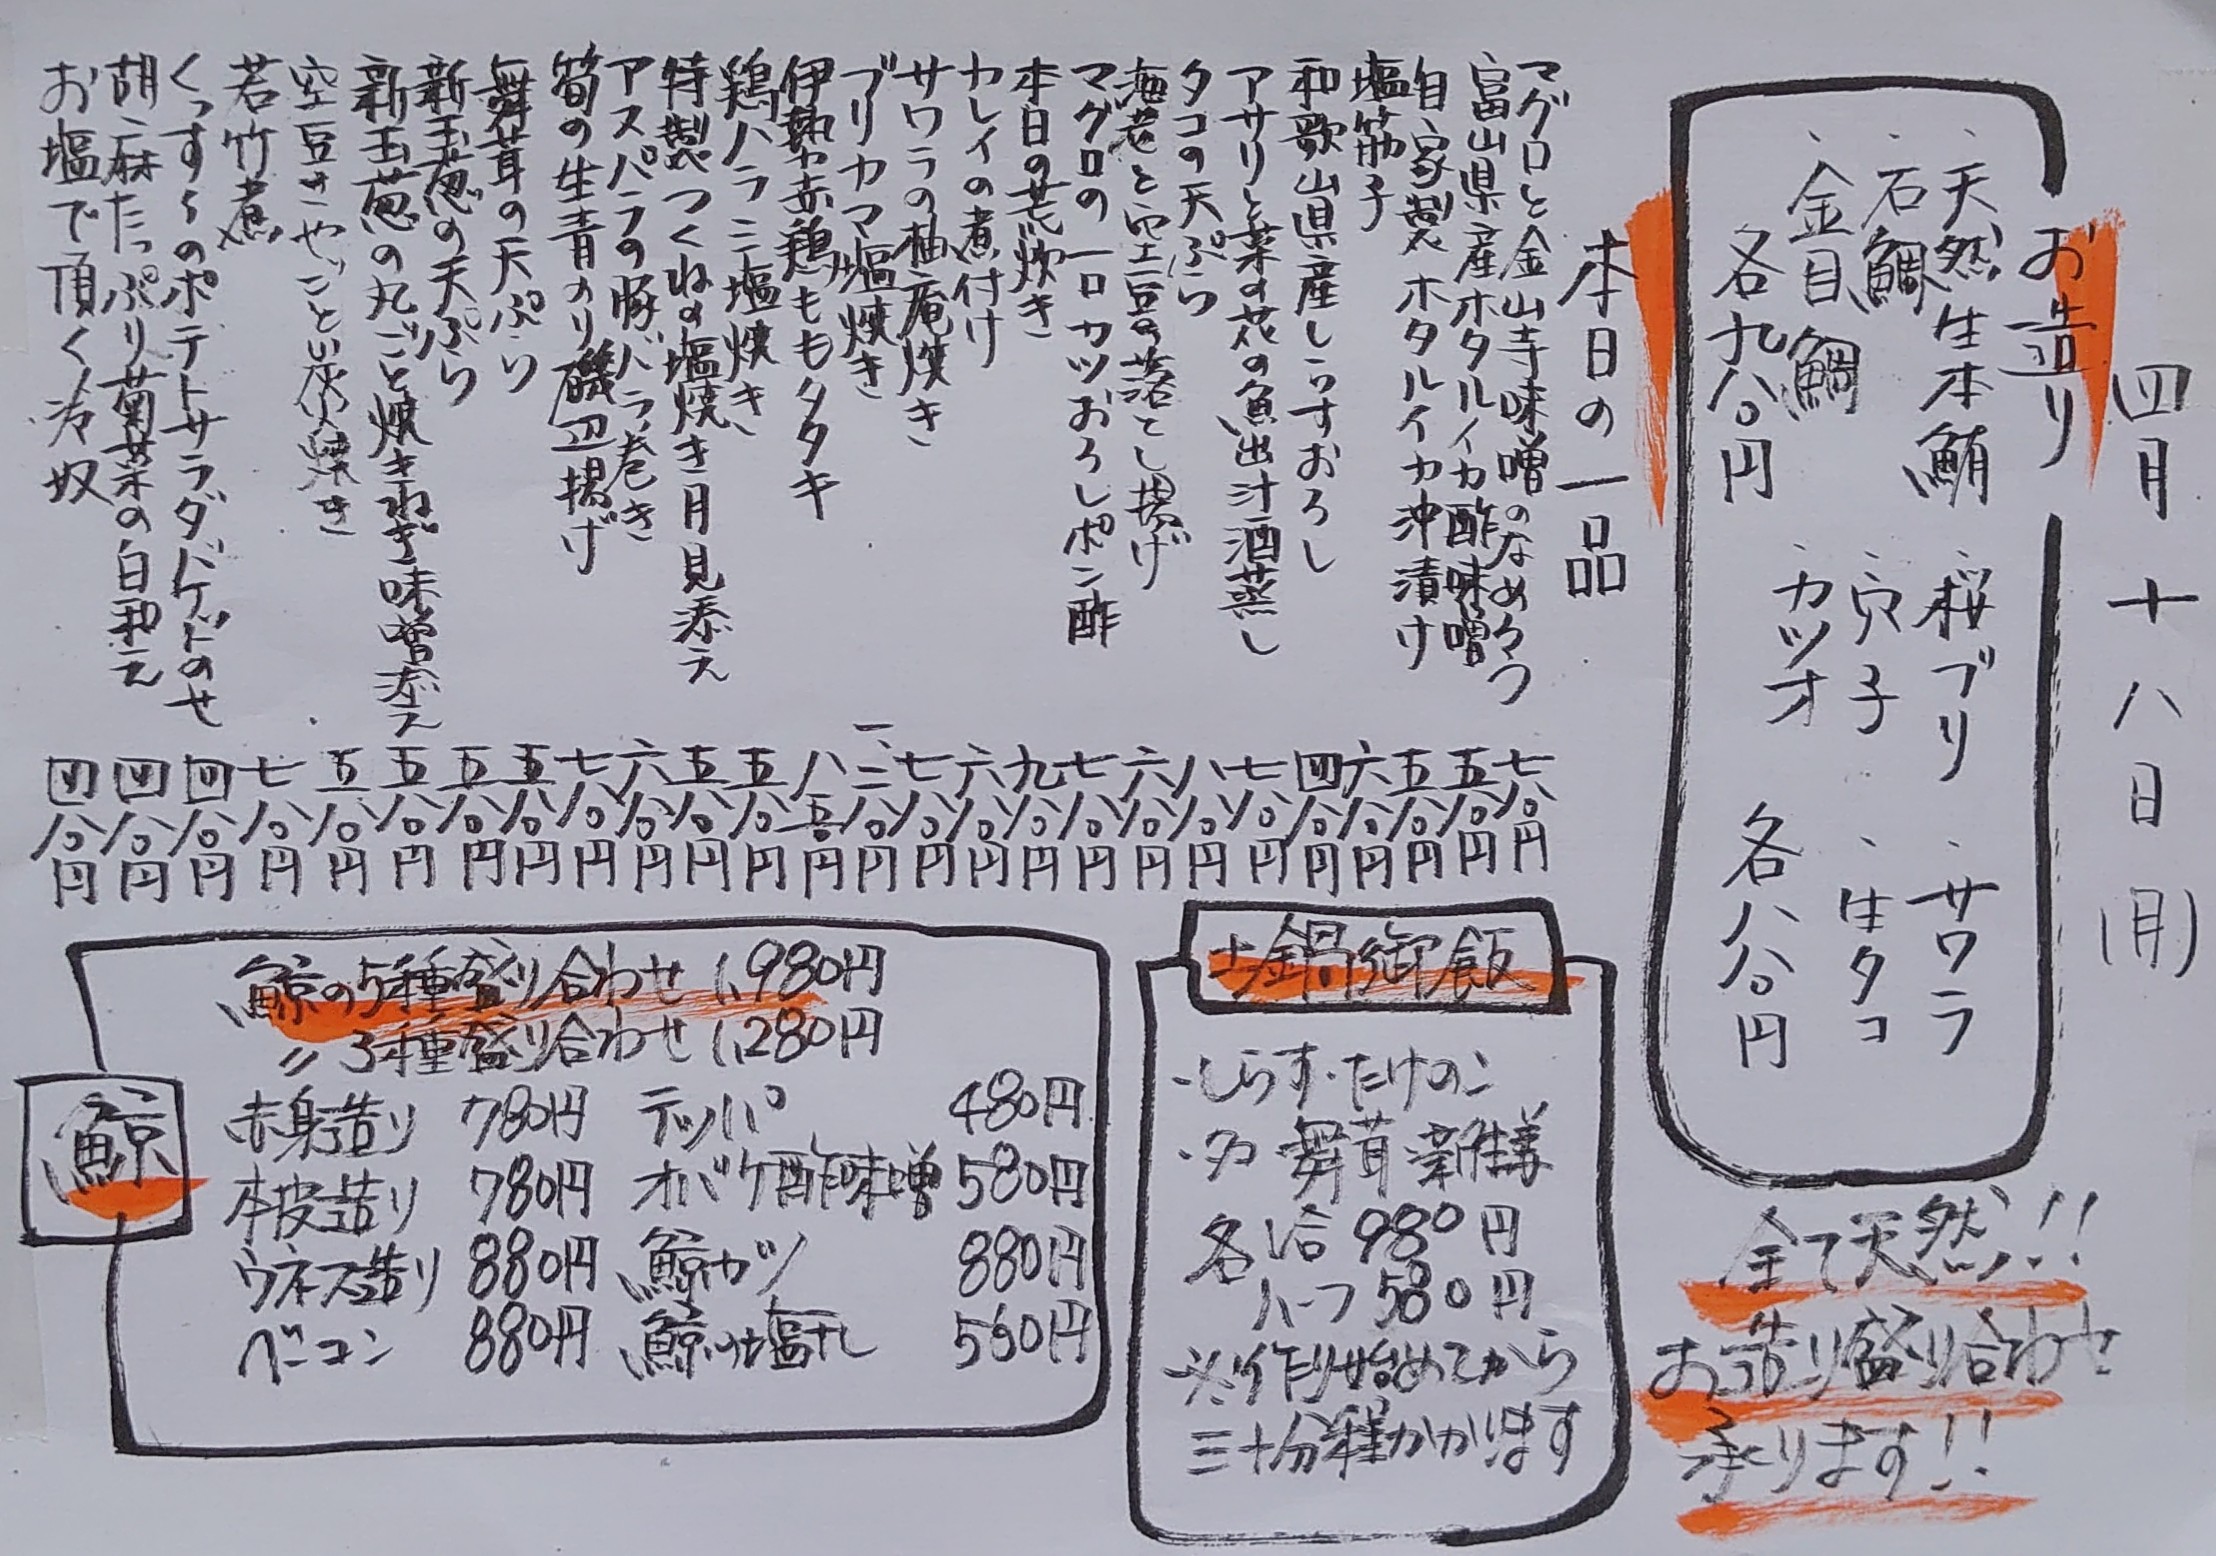 四月十八日(月)
お造り
・天然生本鮪 ・桜ブリ ・サワラ
・石鯛 ・穴子 ・生タコ
・金目鯛 ・カツオ
各九八〇円 各八八〇円
全て天然!!
お造り盛り合わせ
承ります!!
本日の一品
マグロと金山寺味噌のなめろう 七八〇円
富山県産ホタルイカ酢味噌 五八〇円
自家製ホタルイカ沖漬け 五八〇円
塩筋子 六八〇円
和歌山県産しらすおろし 四八〇円
アサリと菜の花の魚出汁酒蒸し 七八〇円
タコの天ぷら 八八〇円
海老と空豆の落とし揚げ 六八〇円
マグロの一口カツおろしポン酢 七八〇円
本日の荒炊き 九八〇円
カレイの煮付け 六八〇円
サワラの柚庵焼き 七八〇円
ブリカマ塩焼き 一、二八〇円
伊勢赤鶏ももタタキ 八五〇円
鶏ハラミ塩焼き 五八〇円
特製つくねの塩焼き月見添え 五八〇円
アスパラの豚バラ巻き 六八〇円
筍の生青のり磯辺揚げ 七八〇円
舞茸の天ぷら 五八〇円
新玉葱の天ぷら 五八〇円
新玉葱の丸ごと焼きねぎ味噌添え 五八〇円
空豆さやごと炭火焼き 五八〇円
若竹煮 七八〇円
くっすぅのポテトサラダバゲットのせ 四八〇円
胡麻たっぷり菊菜の白和え 四八〇円
お塩で頂く冷奴 四八〇円
土鍋御飯
・しらす・たけのこ
・舞茸 新生姜
各一合 980円
ハーフ 580円
※作り始めてから
三十分程かかります
鯨
鯨の5種盛り合わせ 1,980円
〃 3種盛り合わせ 1,280円
赤身造り 780円 テッパ 480円
本皮造り 780円 オバケ酢味噌 580円
ウネス造り 880円 鯨カツ 880円
ベーコン 880円 鯨の塩干し 560円